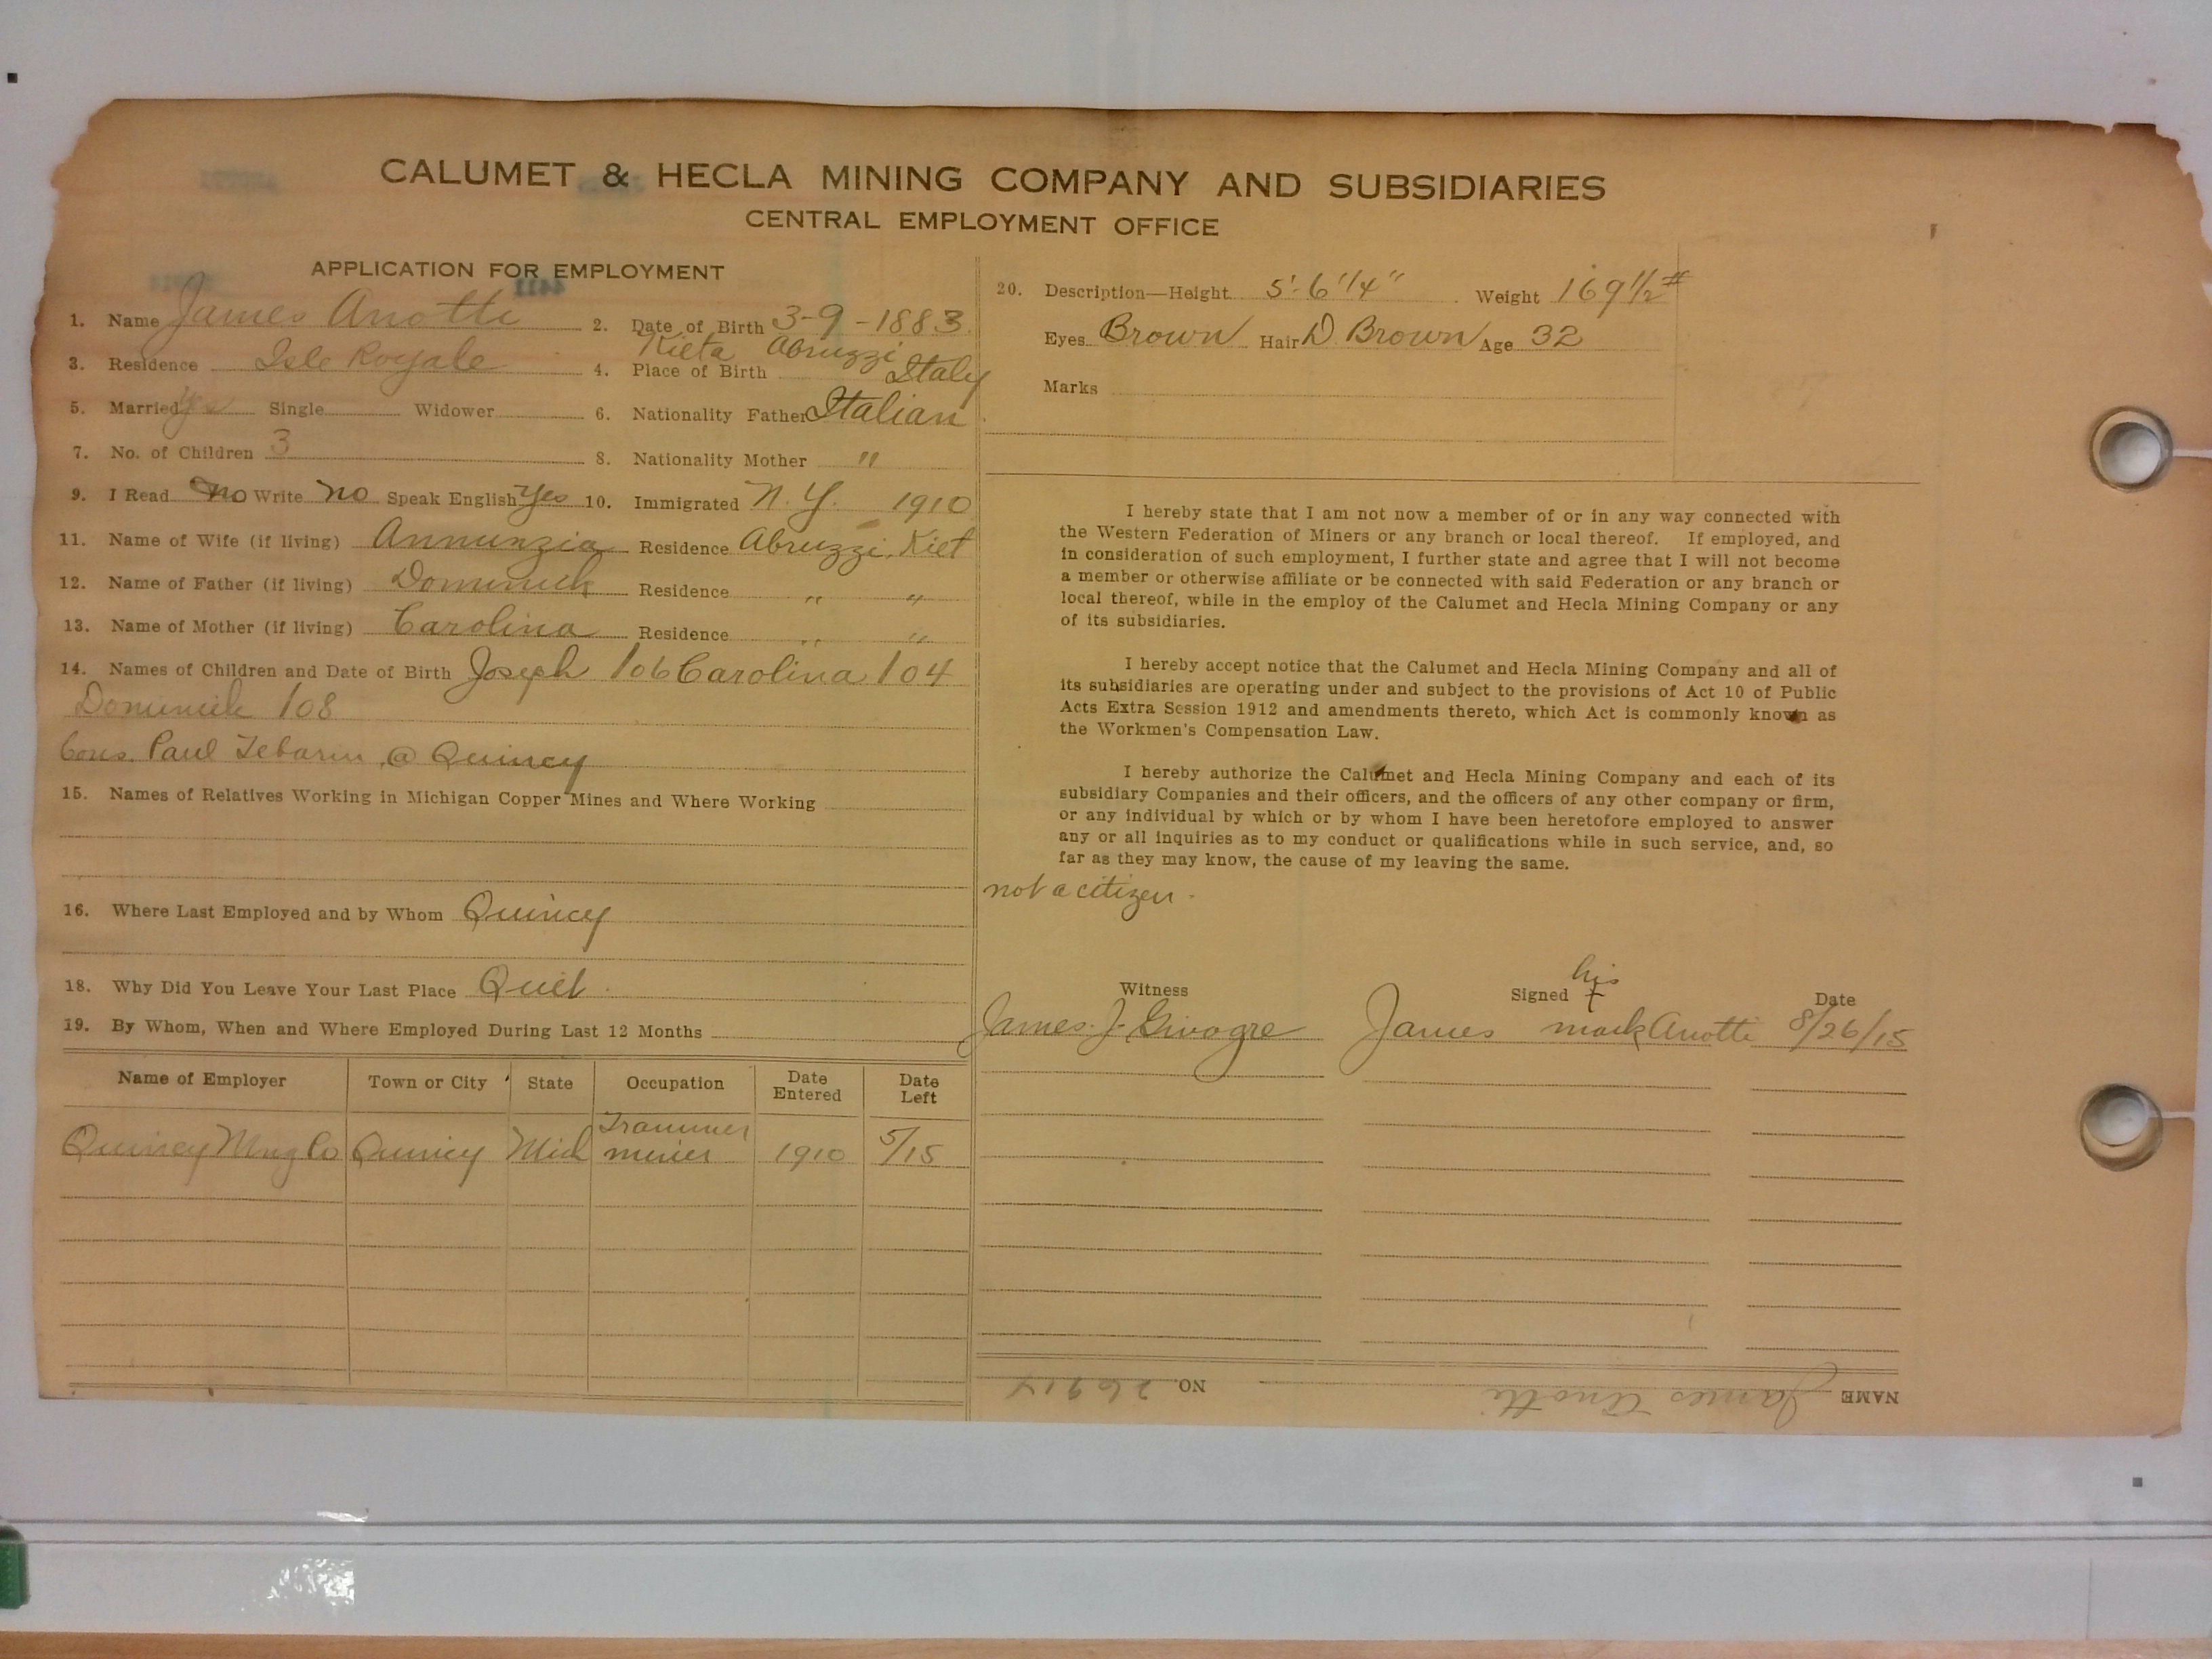 CALUMET & HECLA MINING COMPANY AND SUBSIDIARIES
CENTRAL EMPLOYMENT OFFICE
APPLICATION FOR EMPLOYMENT
1. Name James Anotti 2. Date of Birth 3-9-1883
3. Residence Isle Royale 4. Place of Birth Kieta Abruzzi Italy
5. Married yes Single Widower 6. Nationality Father Italian
7. No. of Children 3 8. Nationality Mother "
9. I Read no Write no Speak English Yes 10. Immigrated N.Y. 1910
11. Name of Wife (if living) Annunzia Residence Abruzzi, Kiet
12. Name of Father (if living) Dominick Residence " "
13. Name of Mother (if living) Carolina Residence " "
14. Names of Children and Date of Birth Joseph /06 Carolina /04
Dominick /08
Cous. Paul @ Quincy
15. Names of Relatives Working in Michigan Copper Mines and Where Working
16. Where Last Employed and by Whom Quincy
18. Why Did You Leave Your Last Place Quit
19. By Whom, When and Where Employed During Last 12 Months
Name of Employer Town or City State Occupation Date Entered Date Left
Quincy Mng Co Quincy Mich Trammer miner 1910 5/15
20. Description—Height 5'-6 1/4" Weight 169 1/2 #
Eyes Brown Hair D. Brown Age 32
Marks
I hereby state that I am not now a member of or in any way connected with
the Western Federation of Miners or any branch or local thereof. If employed, and
in consideration of such employment, I further state and agree that I will not become
a member or otherwise affiliate or be connected with said Federation or any branch or
local thereof, while in the employ of the Calumet and Hecla Mining Company or any
of its subsidiaries.
I hereby accept notice that the Calumet and Hecla Mining Company and all of
its subsidiaries are operating under and subject to the provisions of Act 10 of Public
Acts Extra Session 1912 and amendments thereto, which Act is commonly known as
the Workmen's Compensation Law.
I hereby authorize the Calumet and Hecla Mining Company and each of its
subsidiary Companies and their officers, and the officers of any other company or firm,
or any individual by which or by whom I have been heretofore employed to answer
any or all inquiries as to my conduct or qualifications while in such service, and, so
far as they may know, the cause of my leaving the same.
not a citizen.
Witness Signed his + Date
James J. James mark Anotti 8/26/15
NAME James Anotti NO. 26914